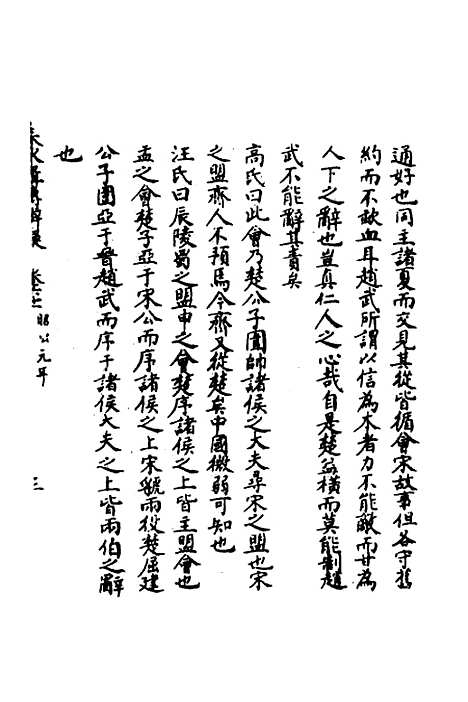 通好也同主諸夏而交見其從皆循會宋故事但各守舊
約而不歃血耳趙武所謂以信為本者力不能敵而甘為
人下之辭也豈真仁人之心哉自是楚益橫而莫能制趙
武不能辭其責矣
高氏曰此會乃楚公子圍帥諸侯之大夫尋宋之盟也宋
之盟齊人不預焉今齊又從楚矣中國微弱可知也
汪氏曰辰陵蜀之盟申之會楚序諸侯之上皆主盟會也
盂之會楚子亞于宋公而序諸侯之上宋虢兩役楚屈建
公子圍亞于晉趙武而序于諸侯大夫之上皆兩伯之辭
也
卷 昭公元年 三